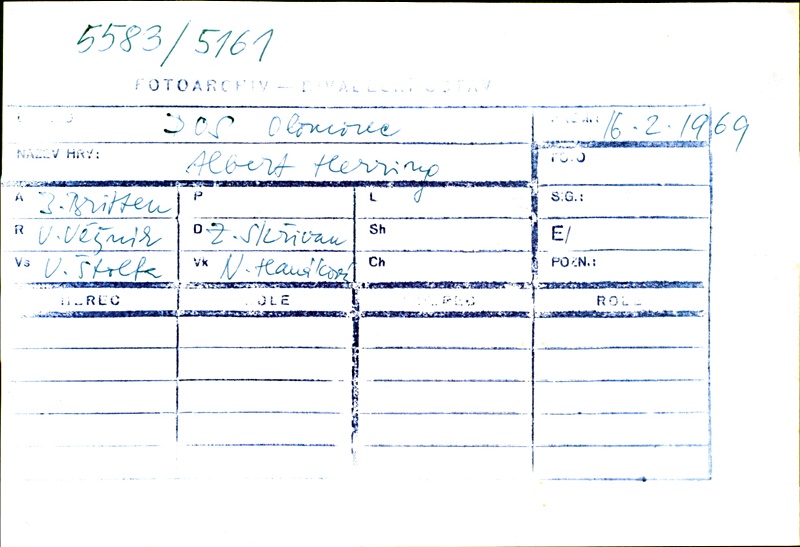 5583/5161
FOTOARCHIV — DIVADELNÍ ÚSTAV
DOS Olomouc 16.2.1969
NÁZEV HRY: Albert Herring FOTO
A B. Britten P L SIG.:
R V. Věžník D Z. Skřivan Sh E/
Vs V. Štolfa Vk N. Hanáková Ch POZN.:
HEREC ROLE HEREC ROLE